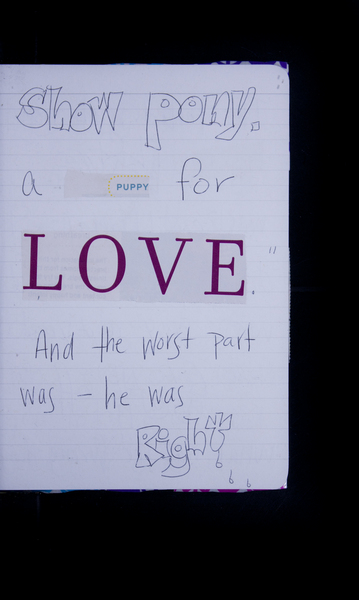 Show pony.
a PUPPY for
LOVE."
And the worst part
was - he was
Right...